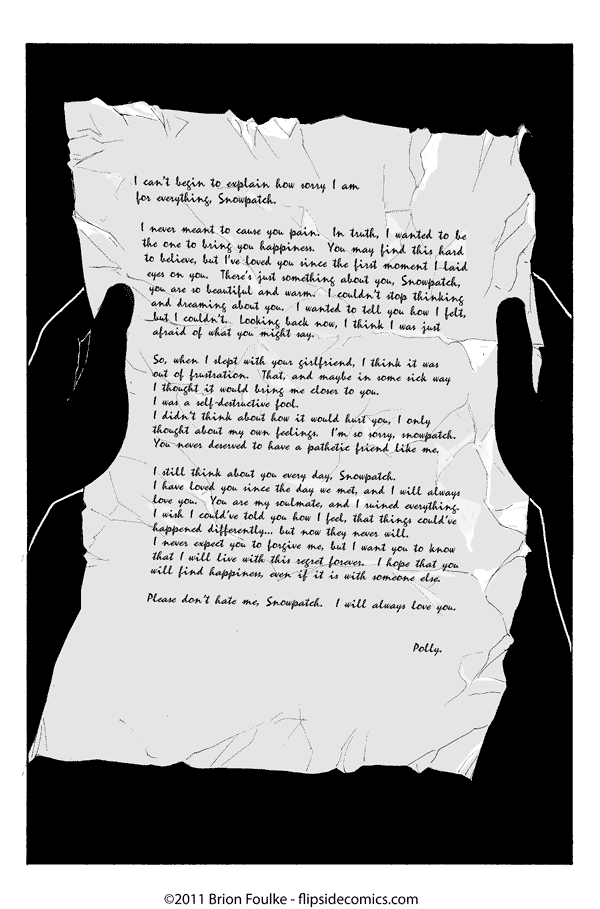 I can't begin to explain how sorry I am
for everything, Snowpatch.
I never meant to cause you pain. In truth, I wanted to be
the one to bring you happiness. You may find this hard
to believe, but I've loved you since the first moment I laid
eyes on you. There's just something about you, Snowpatch,
you are so beautiful and warm. I couldn't stop thinking
and dreaming about you. I wanted to tell you how I felt,
but I couldn't. Looking back now, I think I was just
afraid of what you might say.
So, when I slept with your girlfriend, I think it was
out of frustration. That, and maybe in some sick way
I thought it would bring me closer to you.
I was a self-destructive fool.
I didn't think about how it would hurt you, I only
thought about my own feelings. I'm so sorry, snowpatch.
You never deserved to have a pathetic friend like me.
I still think about you every day, Snowpatch.
I have loved you since the day we met, and I will always
love you. You are my soulmate, and I ruined everything.
I wish I could've told you how I feel, that things could've
happened differently... but now they never will.
I never expect you to forgive me, but I want you to know
that I will live with this regret forever. I hope that you
will find happiness, even if it is with someone else.
Please don't hate me, Snowpatch. I will always love you.
Polly.
©2011 Brion Foulke - flipsidecomics.com